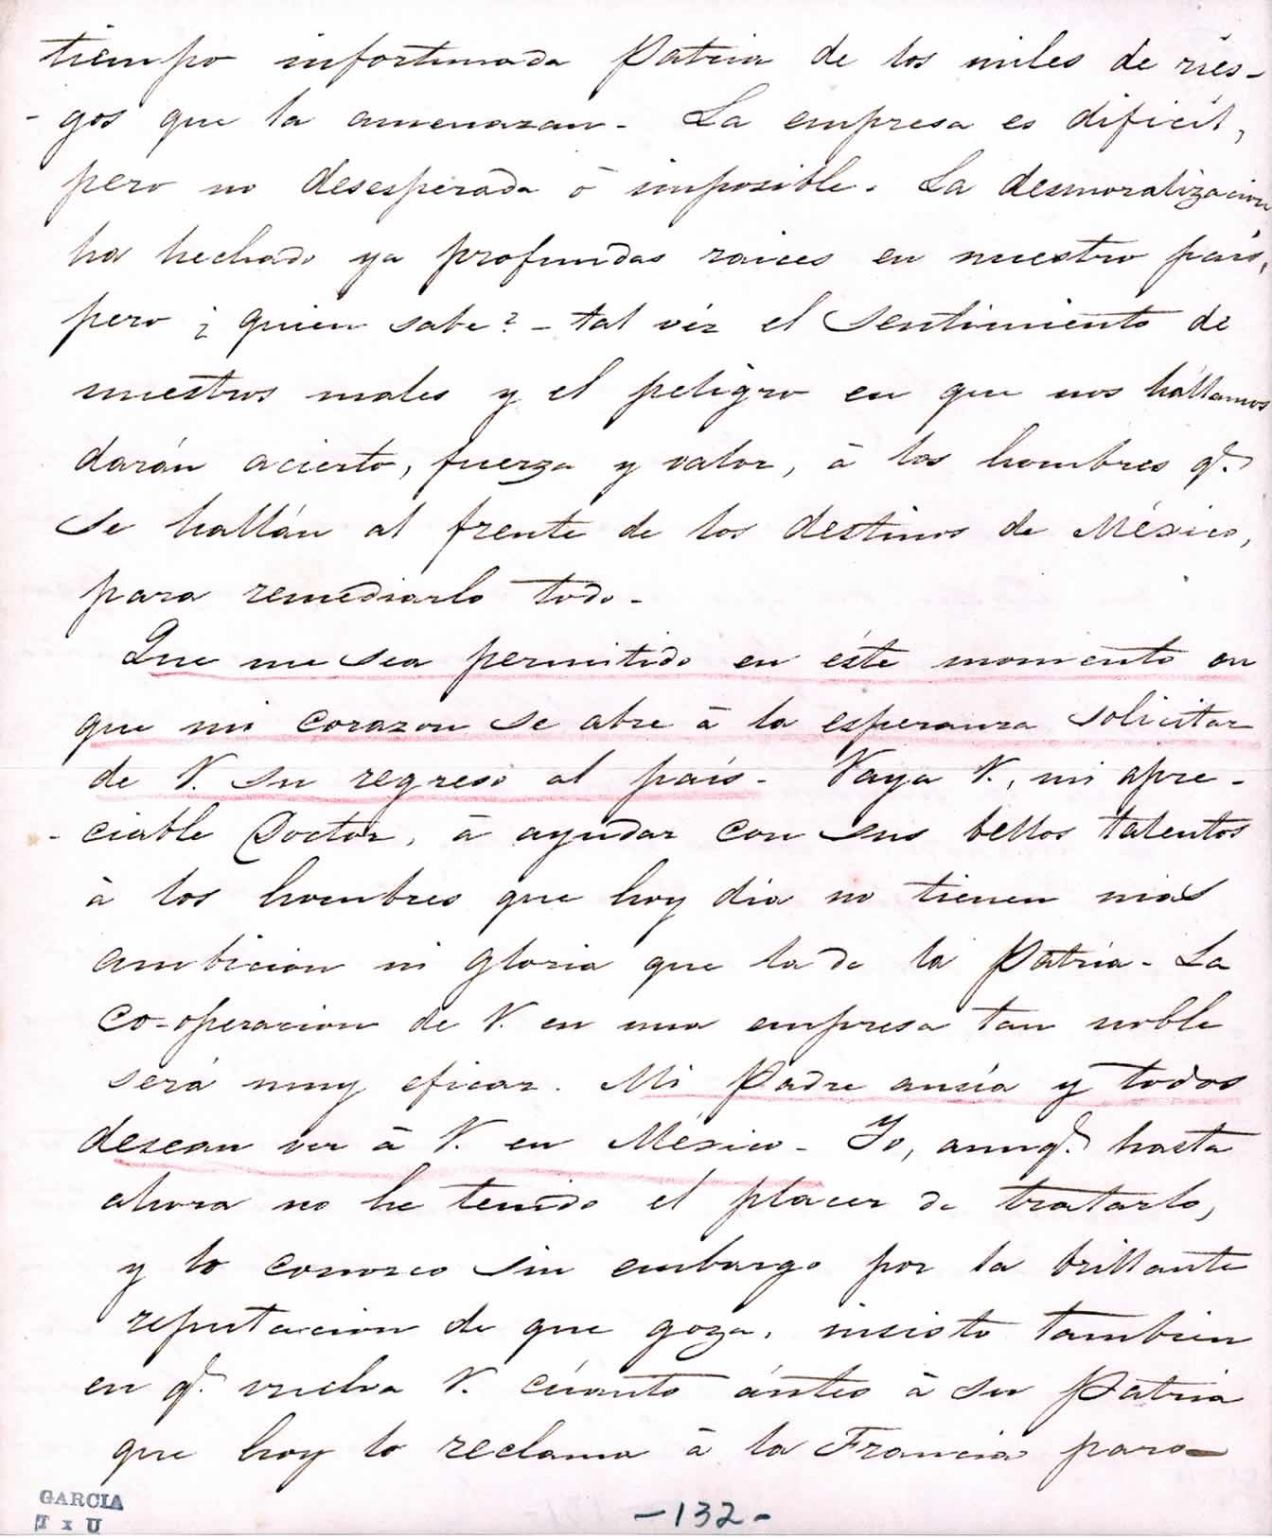 tiempo infortunada Patria de los miles de ries-
-gos que la amenazan- La empresa es dificil,
pero no desesperada ó imposible. La desmoralizacion
ha hechado ya profundas raices en nuestro país,
pero ¿quien sabe?- tal véz el sentimiento de
nuestros males y el peligro en que nos hállamos
darán acierto, fuerza y valor, á los hombres q.e
se hallán al frente de los destinos de México,
para remediarlo todo-
Que me sea permitido en éste momento en
que mi corazon se abre á la esperanza solicitar
de V. su regreso al país- Vaya V., mi apre-
-ciable Doctor, á ayudar con sus bellos talentos
á los hombres que hoy dia no tienen mas
ambicion ni gloria que la de la Pátria- La
co-operacion de V. en una empresa tan noble
será muy eficaz. Mi Padre ansía y todos
desean ver á V. en México- Yo, aunq.e hasta
ahora no he tenido el placer de tratarlo,
y lo conozco sin embargo por la brillante
reputacion de que goza, insisto tambien
en q.e vuelva V. cúanto ántes á su Pátria
que hoy lo reclama á la Francia para
-132-
GARCIA
T x U